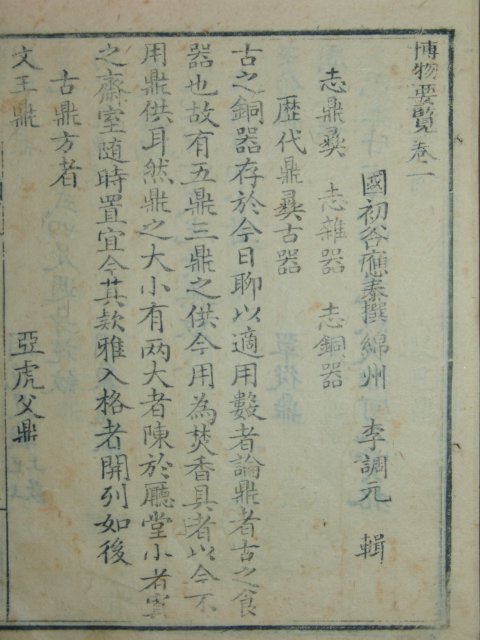 博物要覽卷一
國初谷應泰撰綿州 李調元 輯
志鼎彝 志雜器 志銅器
歷代鼎彝古器
古之銅器存於今日聊以適用數者論鼎者古之食
器也故有五鼎三鼎之供今用為焚香具者以今不
用鼎供耳然鼎之大小有两大者陳於廳堂小者寘
之齋室随時置宜今其款雅入格者開列如後
古鼎方者
文王鼎 亞虎父鼎